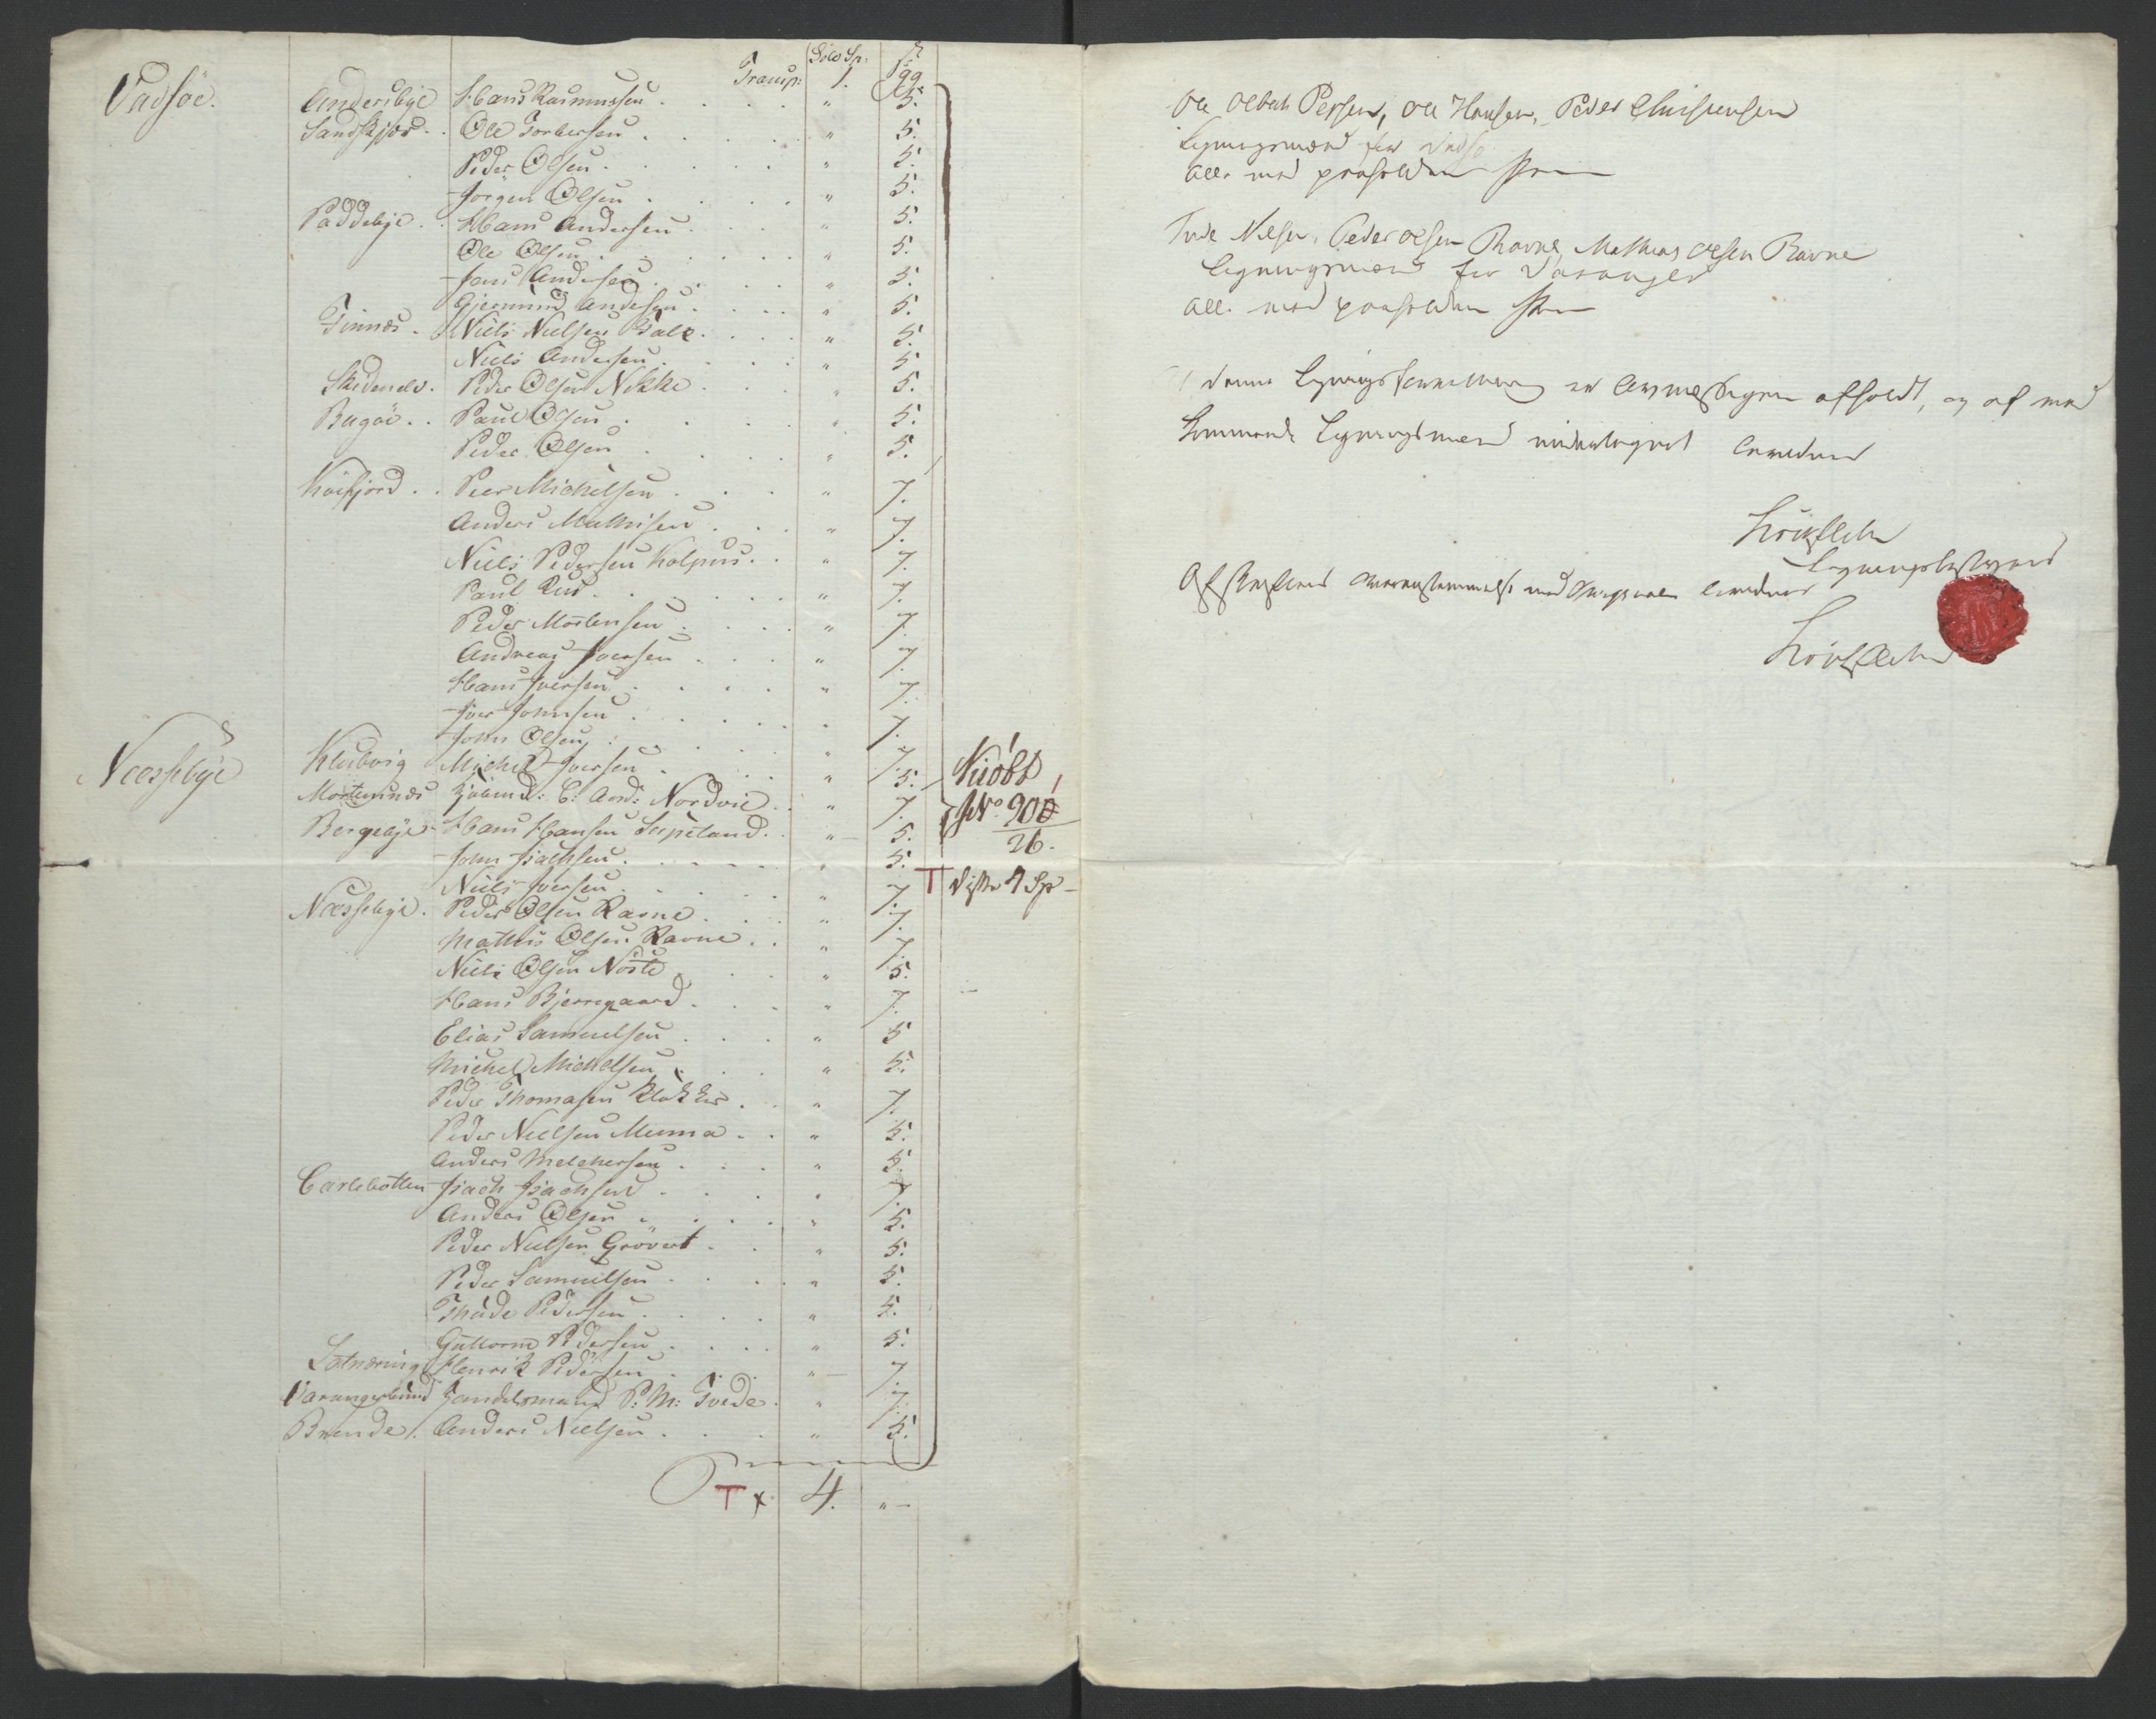 Sölv Sp. ß
Transp: 1. 99
Vadsöe. Andersbye Hans Rasmussen . . . " 5.
Sandskjær . Ole Torbersen . . . " 5.
Peder Olsen . . . " 5.
Jörgen Olsen . . . " 5.
Paddebye . Hans Andersen . . . " 5.
Ole Olsen . . . " 5.
Jens Andersen . . . " 5.
Gjermund Andersen . . . " 5.
Finnes . Niels Nielsen Tale . . . " 5.
Niels Andersen . . . " 5
Skidenelv . Peder Olsen Nikke . . . " 5.
Bugöe . . Paul Olsen . . . " 5.
Peder Olsen . . . " 5.
Koifjord . . Peer Michelsen . . . " 7.
Anders Mathisen . . . " 7.
Niels Pedersen Kolpus . . " 7.
Paul Rus . . . " 7.
Peder Mortensen . . . " 7.
Andreas Iversen . . . " 7.
Hans Iversen . . . " 7.
Iver Johnsen . . . " 7.
John Olsen . . . " 7.
Næssebye Klubvig Michel Iversen . . . " 5.
Mortensnæs Kjöbmd: C: And: Nordvie . . " 7.
Bergebye Hans Hansen Seipeland . . " 5.
John Isachsen . . . " 5.
Niels Iversen . . . " 7.
Næssebye . Peder Olsen Ravne . . . " 7.
Mathis Olsen Ravne . . " 7.
Niels Olsen Noste . . " 5.
Hans Bjerregaard . . . " 7.
Elias Samuelsen . . . " 5
Michel Michelsen . . . " 5.
Peder Thomasen Klokker . . " 7.
Peder Nielsen Munna . . " 5.
Anders Melchersen . . . " 5.
Carlebotten Isach Isachsen . . . " 7.
Anders Olsen . . . " 5.
Peder Nielsen Grövert . . " 5.
Peder Samuelsen . . . " 5.
Thude Pedersen . . . " 5.
Guttorm Pedersen . . . " 5.
Henrik Pedersen . . . " 7.
Varangerbund Handelsmand P: M: Tvede . " 7.
Brende . Anders Nielsen . . . " 5.
T x 4. "
No 900
26.
T 4 Sp
Ole Persen, Ole Hansen, Peder Christensen
Ligningsmænd for Vadsö
alle med paaholden Pen
Tude Nilsen, Peder Olsen Ravne, Mathias Olsen Ravne
Ligningsmænd for Varanger
alle med paaholden Pen
denne Ligningsforretning er afholdt, og af med
kommende Ligningsmænd undertegnet
Ligningsbestyrer
Afskriftens Overensstemmelse med Originalen